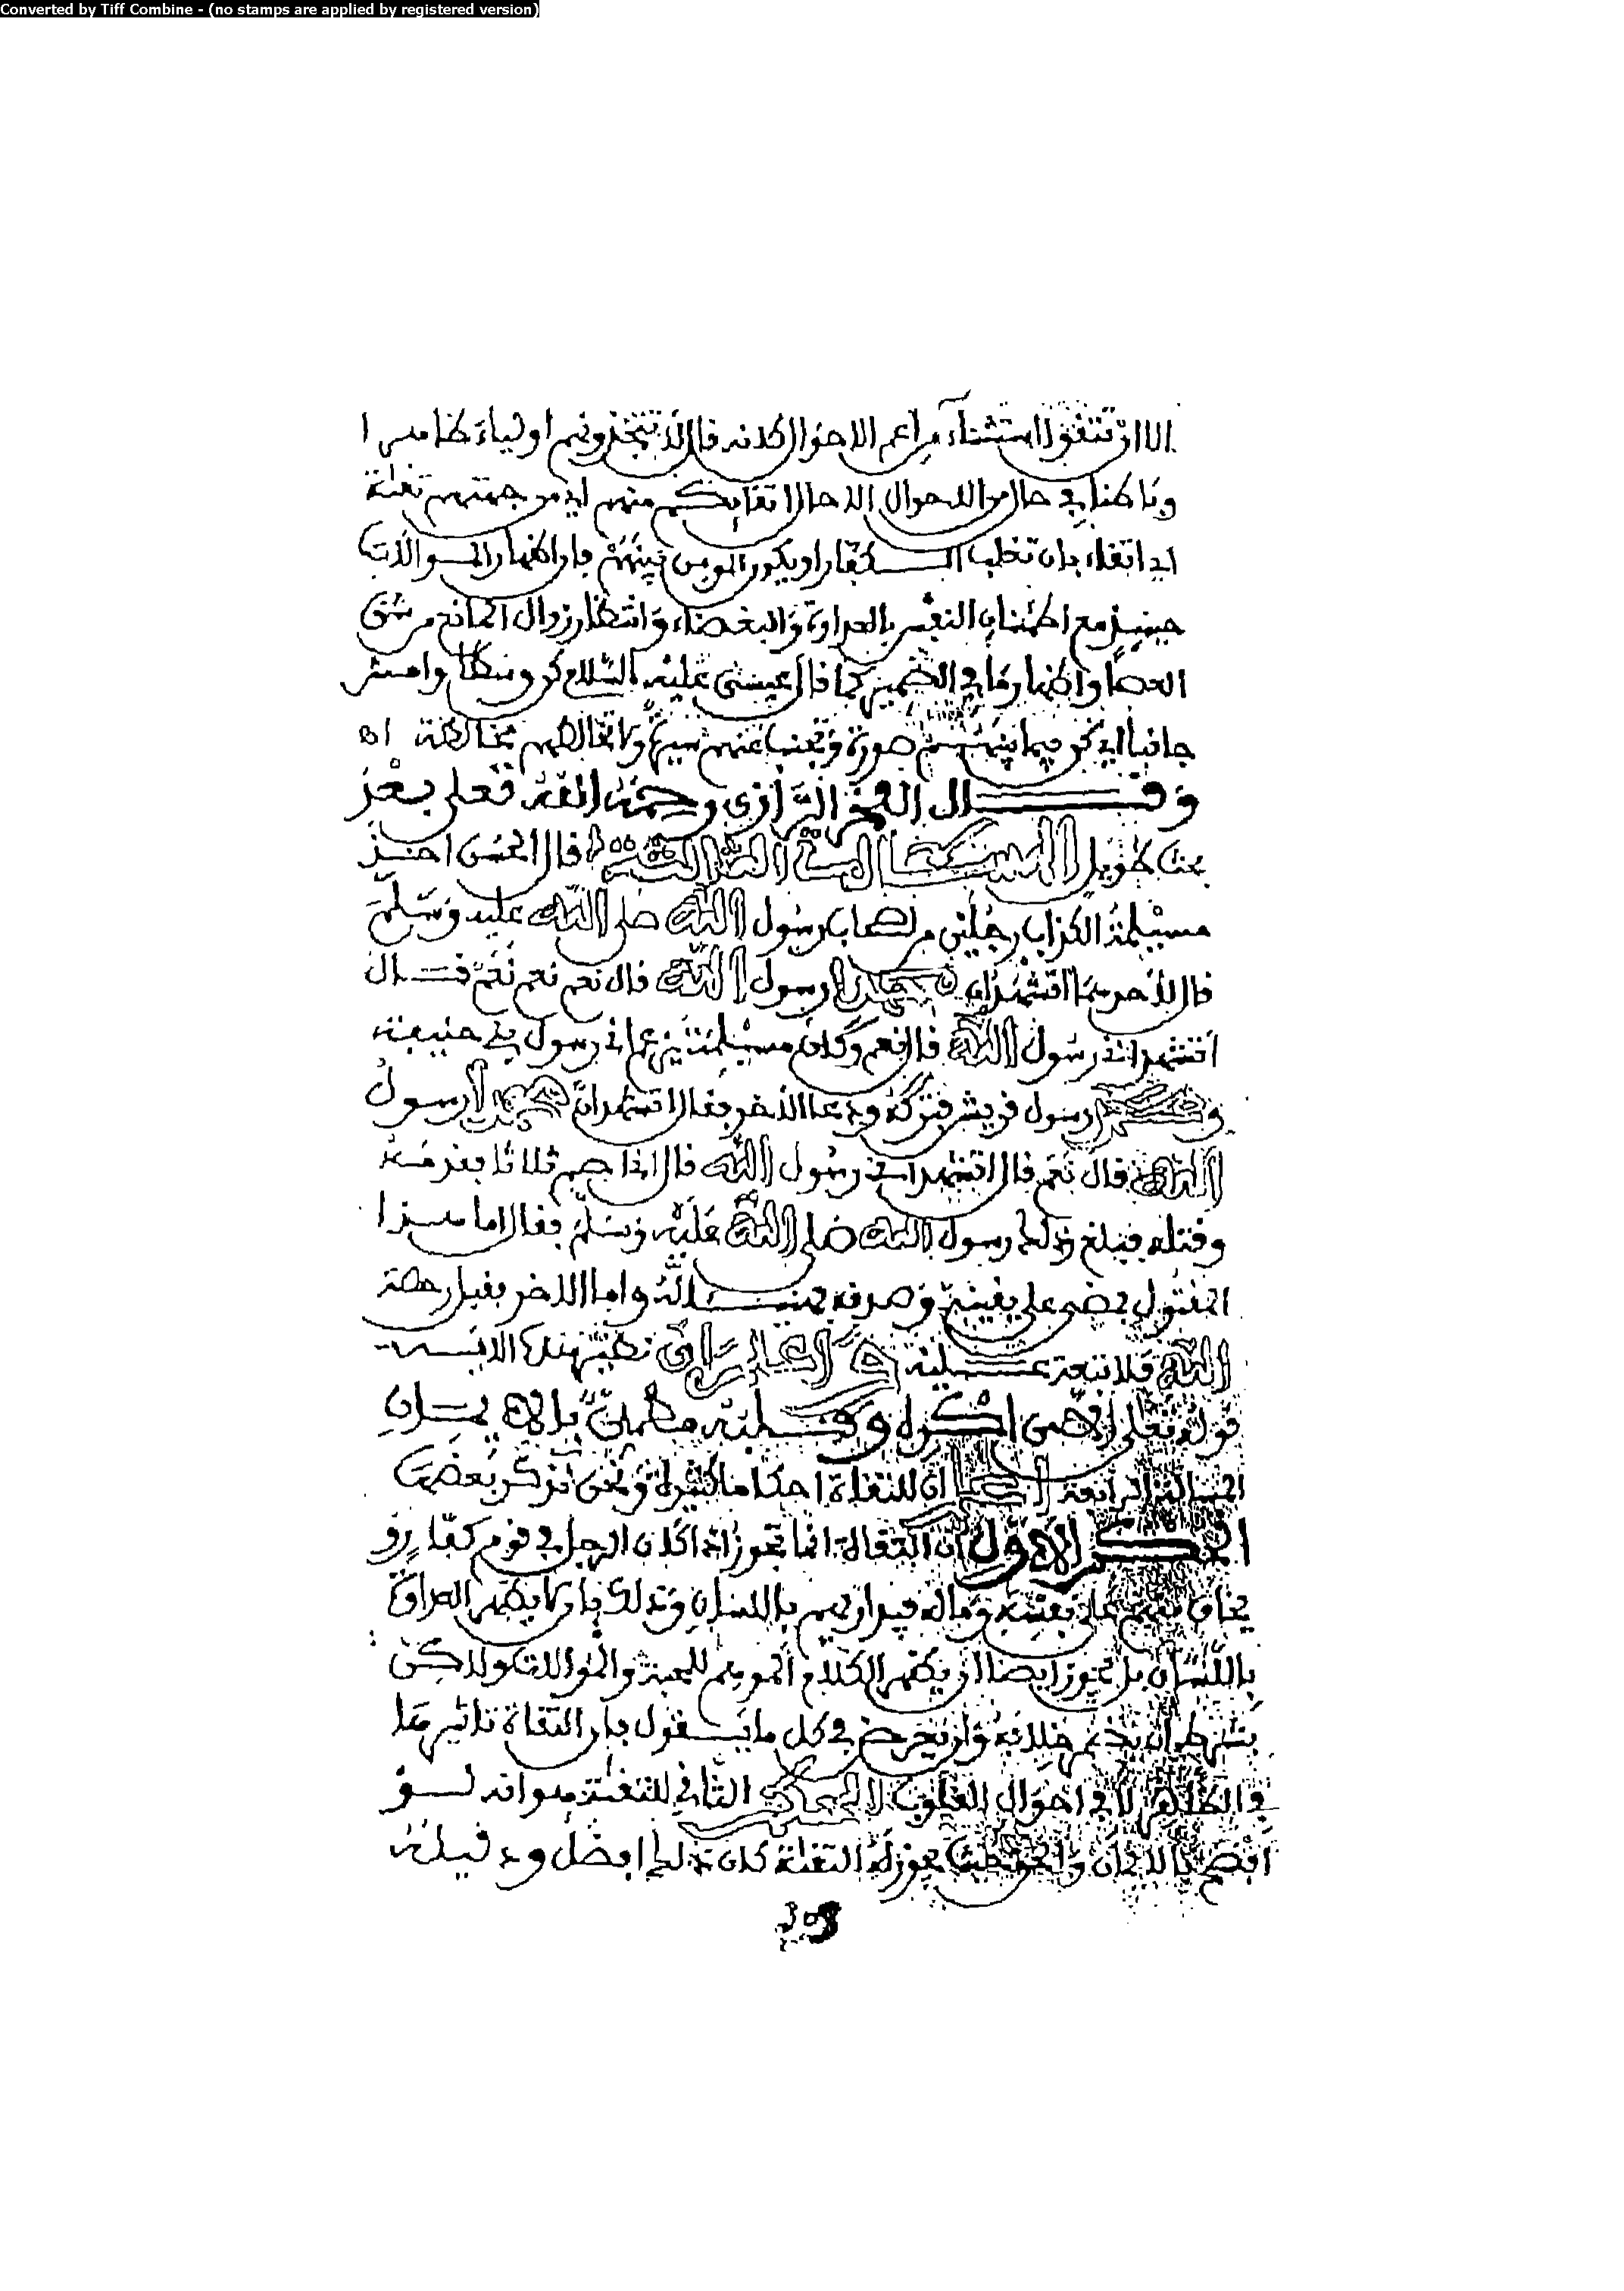 Converted by Tiff Combine - (no stamps are applied by registered version)
الا ان تتقوا استثناء من اعم الاحوال كانه قال لا تتخذونهم اولياء ظاهرا
وباطنا في حال من الاحوال الا حال اتقائكم منهم اي من جهتهم تقاة
اي اتقاء بان تغلب الكفار او يكون المومن بينهم فان اظهار الموالات
حينيذ مع اطمئنان النفس بالعداوة والبغضاء وانتظار زوال المانع من شق
العصا واظهار ما في الضمير كما قال عيسى عليه السلام كن وسطا وامش
جانبا اي كن فيما بينهم صورة وتجنب عنهم سيرة ولا تخالطهم مخالطة اه
وقال الفخر الرازي رحمه الله تعلى بعد
بحث طويل المسئلة الثالثة قال الحسن اخذ
مسيلمة الكذاب رجلين من اصحاب رسول الله صلى الله عليه وسلم
قال لاحدهما اتشهد ان محمدا رسول الله قال نعم نعم نعم قال
اتشهد اني رسول الله قال نعم وكان مسيلمة يزعم انه رسول بني حنيفة
ومحمد رسول قريش فتركه ودعا الاخر فقال اتشهد ان محمدا رسول
الله قال نعم قال اتشهد اني رسول الله قال اني اصم ثلاثا فقدمه
وقتله فبلغ ذلك رسول الله صلى الله عليه وسلم فقال اما هذا
المقتول فمضى على يقينه وصدقه فهنيئا له واما الاخر فقبل رخصة
الله فلا تبعة عليه واعلم ان نظير هذه الاية
قوله تعلى الا من اكره وقلبه مطمئن بالايمان
المسالة الرابعة اعلم ان للتقاة احكاما كثيرة ونحن نذكر بعضها
الحكم الاول ان التقاة انما تجوز اذا كان الرجل في قوم كفار و
يخاف منهم على نفسه وماله فيداريهم باللسان وذلك بان لا يظهر العداوة
باللسان بل يجوز ايضا ان يظهر الكلام الموهم للمحبة والموالات ولاكن
بشرط ان يضمر خلافه وان يعرض في كل ما يقول فان التقاة تاثيرها
في الظاهر لا في احوال القلوب الحكم الثاني للتقية هو انه لو
افصح بالايمان والحق حيث يجوز له التقاة كان ذلك افضل ودليله
308